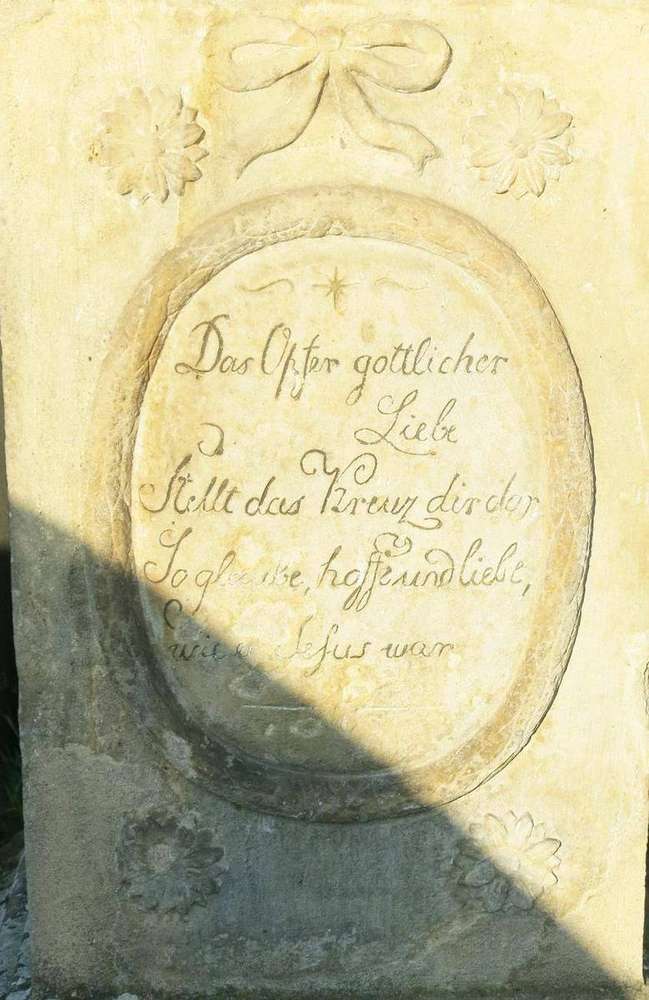 Das Opfer gottlicher
Liebe
Stellt das Kreuz dir dar
So glaube, hoffe und liebe,
wie Jesus war